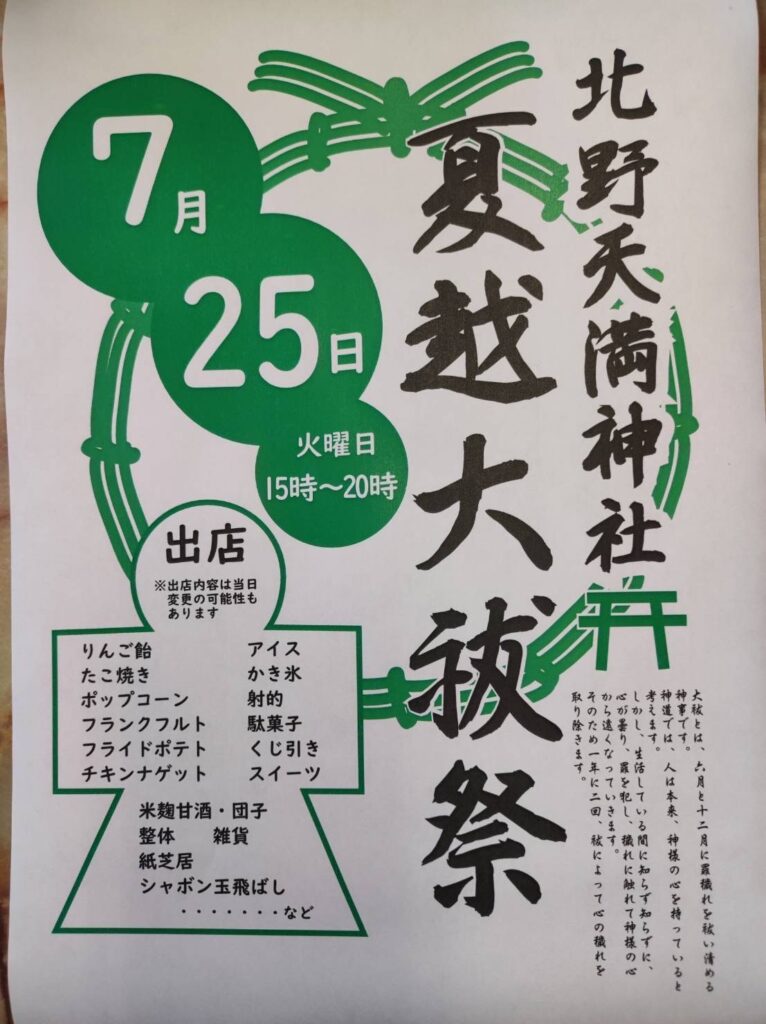 北野天満神社
夏越大祓祭
7月
25日
火曜日
15時〜20時
出店
※出店内容は当日
変更の可能性も
あります
りんご飴
たこ焼き
ポップコーン
フランクフルト
フライドポテト
チキンナゲット
アイス
かき氷
射的
駄菓子
くじ引き
スイーツ
米麹甘酒・団子
整体 雑貨
紙芝居
シャボン玉飛ばし
・・・・・・・など
大祓とは、六月と十二月に罪穢れを祓い清める
神事です。
神道では、人は本来、神様の心を持っていると
考えます。
しかし、生活している間に知らず知らずに、
心が曇り、罪を犯し、穢れに触れて神様の心
から遠くなっていきます。
そのため一年に二回、祓によって心の穢れを
取り除きます。